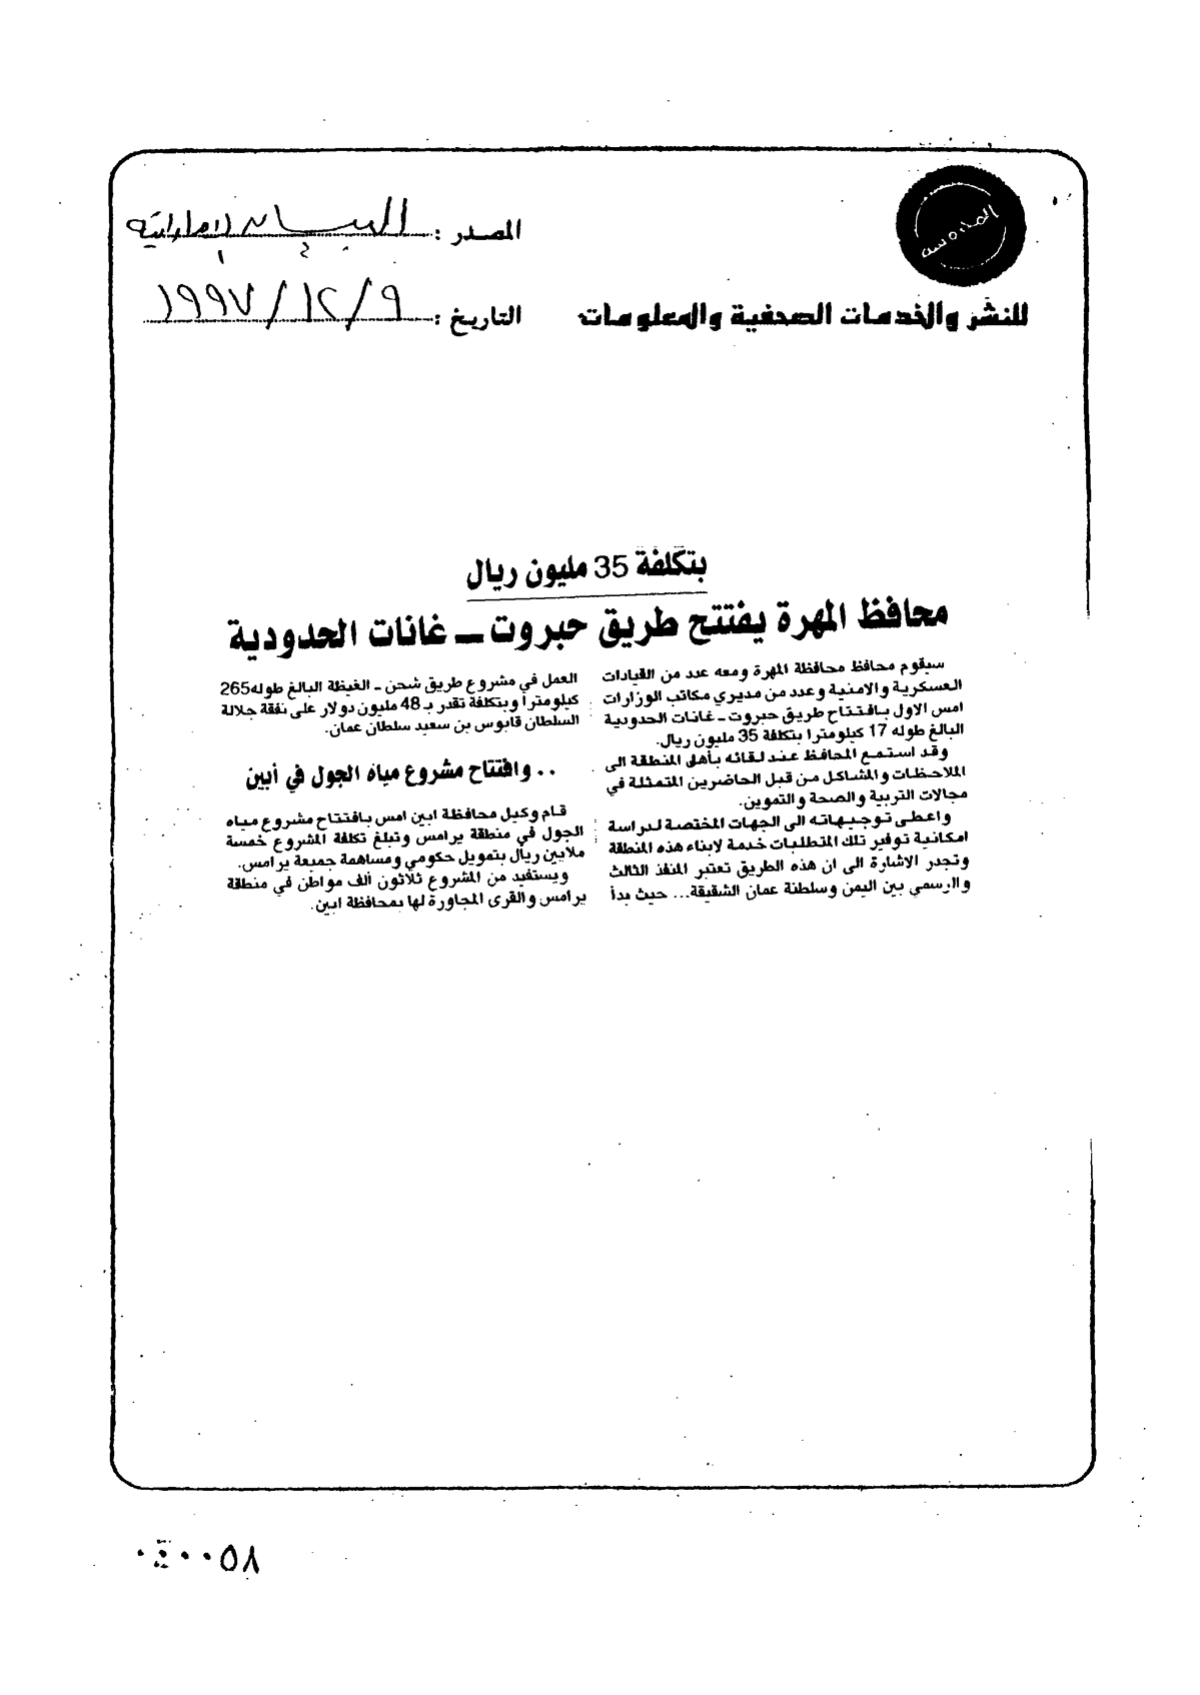 المصدر : البيان الإماراتية
التاريخ : ٩ / ١٢ / ١٩٩٧
للنشر والخدمات الصحفية والمعلومات
بتكلفة 35 مليون ريال
محافظ المهرة يفتتح طريق حبروت ــ غانات الحدودية
سيقوم محافظ محافظة المهرة ومعه عدد من القيادات
العسكرية والامنية وعدد من مديري مكاتب الوزارات
امس الاول بافتتاح طريق حبروت ـ غانات الحدودية
البالغ طوله 17 كيلومترا بتكلفة 35 مليون ريال.
وقد استمع المحافظ عند لقائه بأهل المنطقة الى
الملاحظات والمشاكل من قبل الحاضرين المتمثلة في
مجالات التربية والصحة والتموين.
واعطى توجيهاته الى الجهات المختصة لدراسة
امكانية توفير تلك المتطلبات خدمة لابناء هذه المنطقة
وتجدر الاشارة الى ان هذه الطريق تعتبر المنفذ الثالث
والرسمي بين اليمن وسلطنة عمان الشقيقة... حيث بدأ
العمل في مشروع طريق شحن ـ الغيظة البالغ طوله 265
كيلومترا وبتكلفة تقدر بـ 48 مليون دولار على نفقة جلالة
السلطان قابوس بن سعيد سلطان عمان.
.. وافتتاح مشروع مياه الجول في أبين
قام وكيل محافظة ابين امس بافتتاح مشروع مياه
الجول في منطقة يرامس وتبلغ تكلفة المشروع خمسة
ملايين ريال بتمويل حكومي ومساهمة جمعية يرامس.
ويستفيد من المشروع ثلاثون ألف مواطن في منطقة
يرامس والقرى المجاورة لها بمحافظة ابين.
٠٤٠٠٥٨